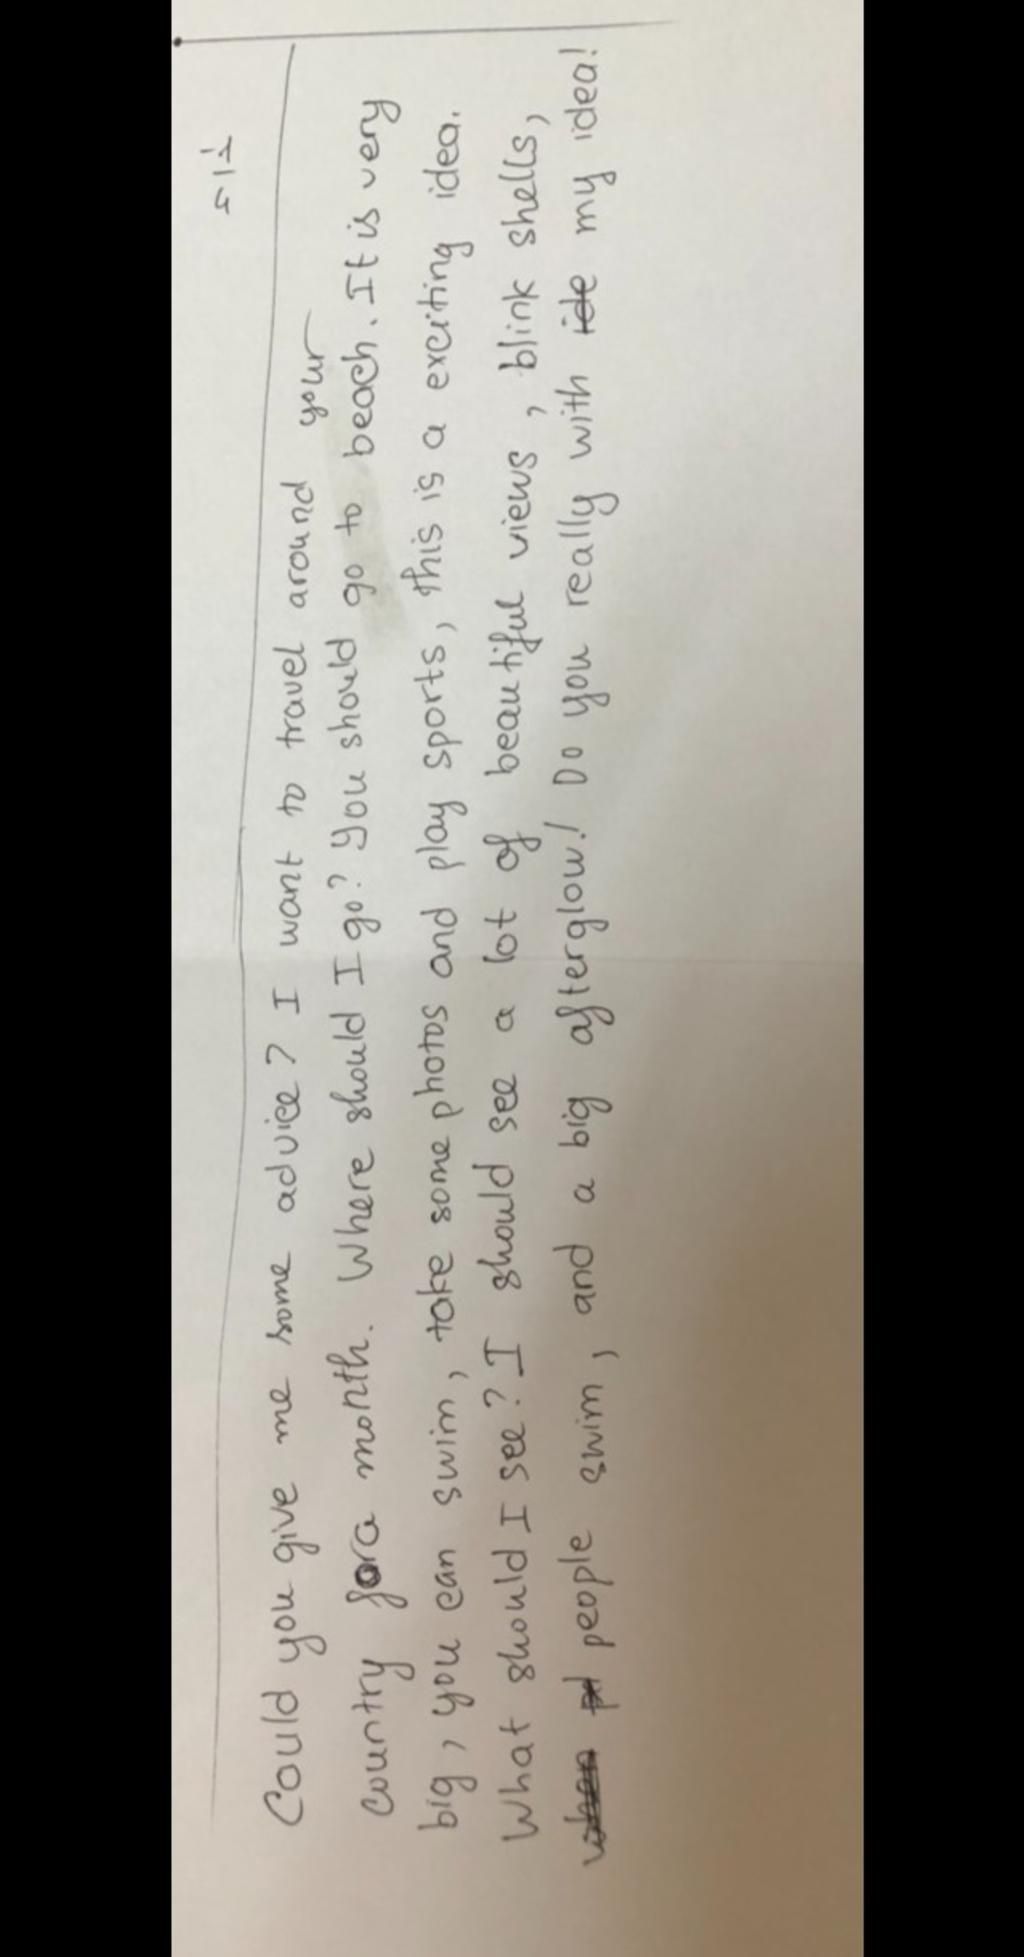 Could you give me some advice? I want to travel around your
country for a month. Where should I go? You should go to beach. It is very
big, you can swim, take some photos and play sports, this is a exciting idea.
What should I see? I should see a lot of beautiful views, blink shells,
people swim, and a big afterglow! Do you really with my idea!